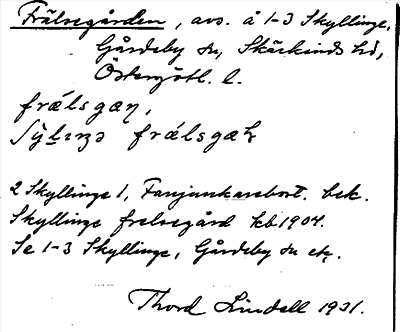 Frälsegården, avs. å 1-3 Skyllinge,
Gårdeby sn, Skärkinds hd,
Östergötl. l.
frálsgaɳ,
ʃýḻɪŋə frálsgaɳ
2 Skyllinge 1, Fanjunkarebost. bek.
Skyllinge frelsegård kb 1904.
Se 1-3 Skyllinge, Gårdeby sn etc.
Thord Lindell 1931.